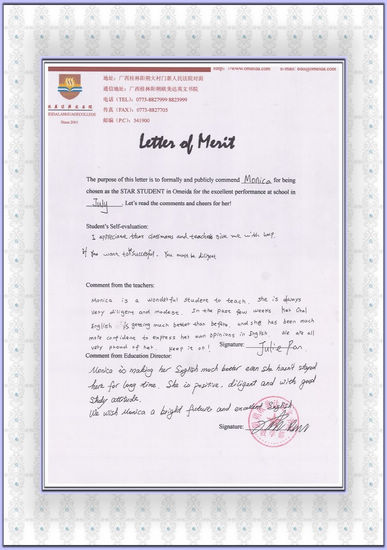 http://www.omeida.com E-mail: edu@omeida.com
地址：广西桂林阳朔大村门新人民法院对面
通信地址：广西桂林阳朔欧美达英文书院
电话（TEL）：0773-8827999 8823999
传真（FAX）：0773-8827705
邮编（P.C）：541900
Since 2001
Letter of Merit
The purpose of this letter is to formally and publicly commend Monica for being
chosen as the STAR STUDENT in Omeida for the excellent performance at school in
July. Let's read the comments and cheers for her!
Student's Self-evaluation:
I appreciate that classmates and teachers give me with help.
if You want to successful. You must be diligent
Comment from the teachers:
Monica is a wonderful student to teach. She is always
very diligent and modest. In the past few weeks her Oral
English is getting much better than before, and she has been much
more confident to express her own opinions in English. We are all
very proud of her. Keep it on! Signature: Julie Pan
Comment from Education Director:
Monica is making her English much better even she hasn't stayed
here for long time. She is positive, diligent and with good
study attitude.
We wish Monica a bright future and excellent English.
Signature: